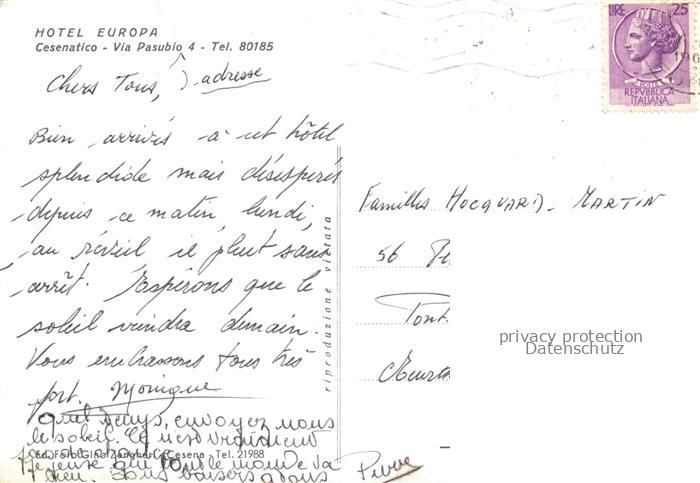 HOTEL EUROPA
Cesenatico - Via Pasubio 4 - Tel. 80185
LIRE 25
POSTE
REPVBBLICA
ITALIANA
Chers Tous, adresse
Bien arrivés à cet hôtel
splendide mais désespérés
depuis ce matin, lundi,
au réveil il pleut sans
arrêt. Espérons que le
soleil viendra demain.
Vous embrassons tous très
fort. Monique
Quel temps, envoyez nous
le soleil. Ce n'est vraiment
Ed. Foto Gino Zangheri - Cesena - Tel. 21988
que tout le monde va
bien. bons baisers à tous
Pierre
riproduzione vietata
Familles HOCQUARD - MARTIN
56
Pont
Meurt
privacy protection
Datenschutz